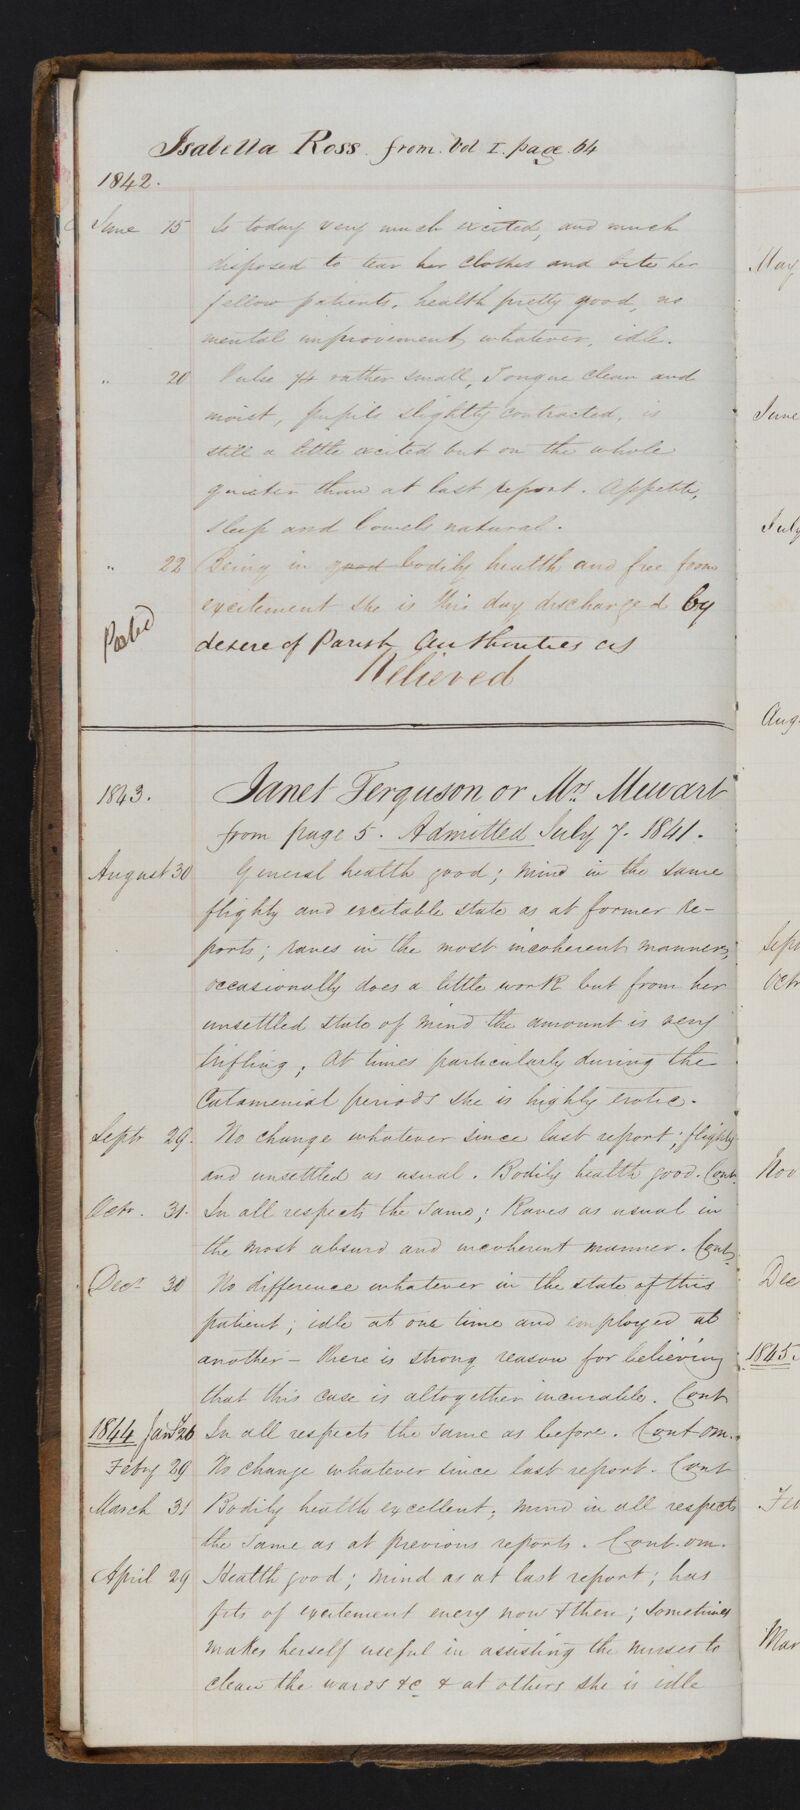 Isabella Ross from Vol I. page 64
1842.
June 15 Is today very much excited, and much
disposed to tear her clothes and bite her
fellow patients, health pretty good, no
mental improvement whatever, idle.
" 20 Pulse 74 rather small, Tongue clean and
moist, pupils slightly contracted, is
still a little excited but on the whole
quieter than at last report. Appetite,
sleep and bowels natural.
" 22 Being in good bodily health and free from
excitement she is this day discharged by
desire of Parish Authorities as
Relieved
1843. Janet Ferguson or Mrs
from page 5. Admitted July 7. 1841.
August 30 General health good; mind in the same
flighty and excitable state as at former re-
ports; raves in the most incoherent manner,
occasionally does a little work but from her
unsettled state of mind the amount is very
trifling; At times particularly during the
Catamenial periods she is highly erotic.
Septr 29. No change whatever since last report; flighty
and unsettled as usual. Bodily health good. Cont.
Octr. 31. In all respects the same; Raves as usual in
the most absurd and incoherent manner. Cont.
Decr 30 No difference whatever in the state of this
patient; idle at one time and employed at
another - there is strong reason for believing
that this case is altogether incurable. Cont
1844 Jany 26 In all respects the same as before. Cont om.
Feby 29 No change whatever since last report. Cont
March 31 Bodily health excellent; mind in all respects
the same as at previous reports. Cont. om.
April 29 Health good; mind as at last report; has
fits of excitement every now & then; sometimes
makes herself useful in assisting the nurses to
clean the wards &c & at others she is idle
May
June
July
Aug.
Sep
Octr
Nov
Dec
1845.
Mar